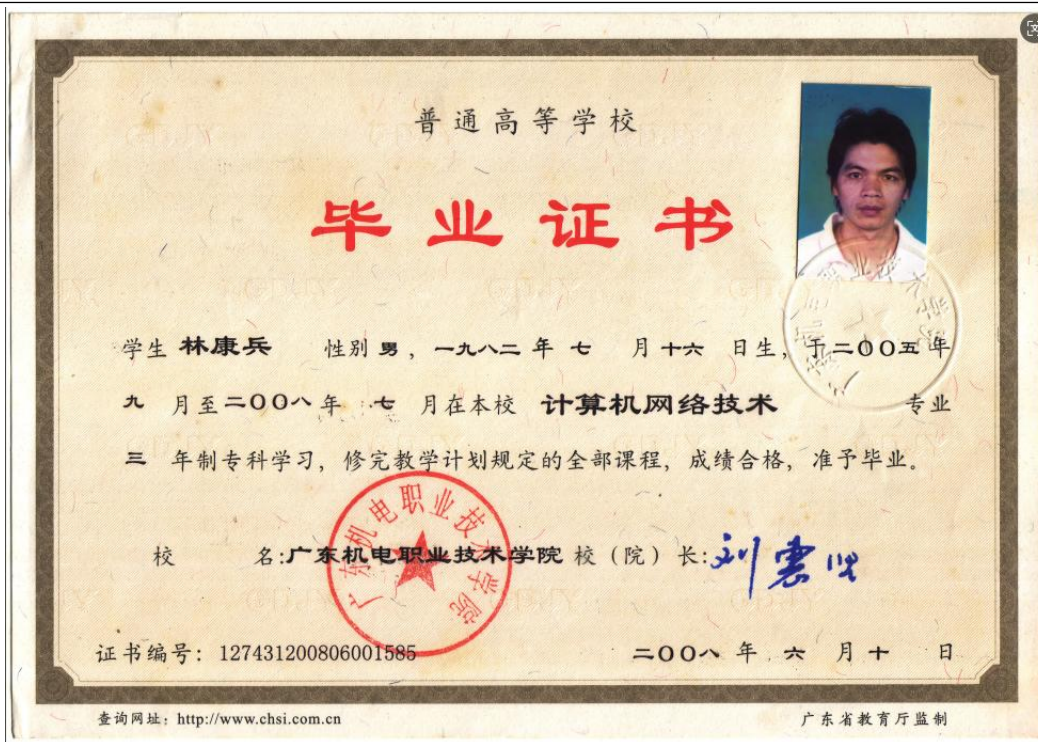 普通高等学校
毕业证书
学生 林康兵 性别 男，一九八二 年 七 月 十六 日生，于二〇〇五 年
九 月至二〇〇八 年 七 月在本校 计算机网络技术 专业
三 年制专科学习，修完教学计划规定的全部课程，成绩合格，准予毕业。
广东机电职业技术学院
校 名:广东机电职业技术学院 校（院）长:
证书编号：127431200806001585 二〇〇八 年 六 月 十 日
查询网址：http://www.chsi.com.cn 广东省教育厅监制